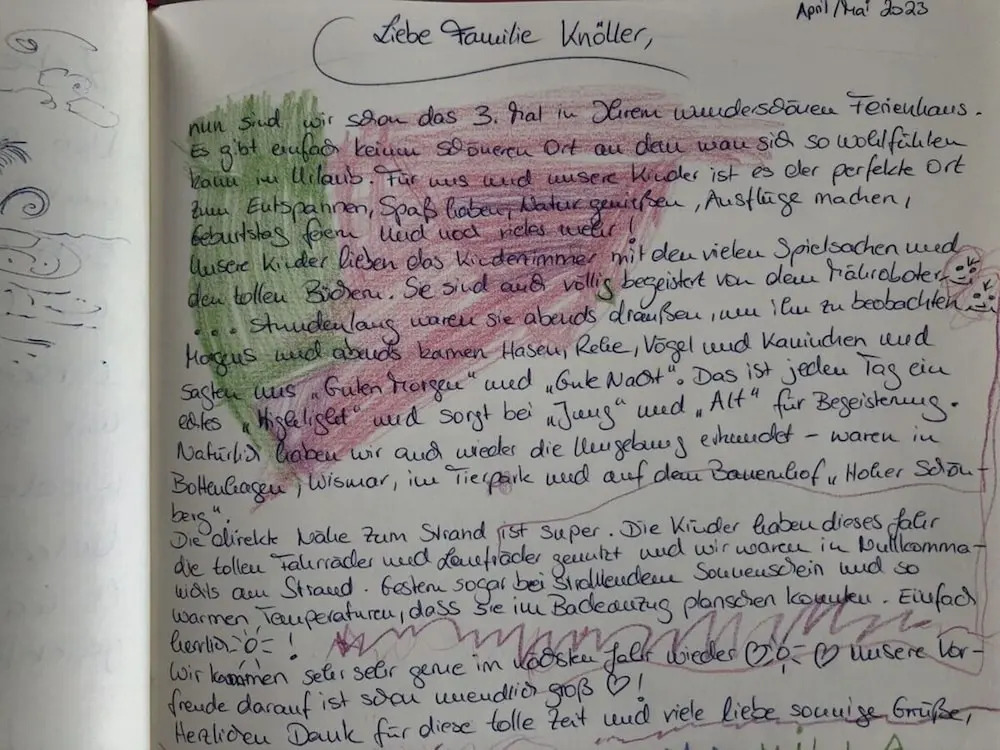 April/Mai 2023
Liebe Familie Knöller,
nun sind wir schon das 3. Mal in Ihrem wunderschönen Ferienhaus.
Es gibt einfach keinen schöneren Ort an dem man sich so wohlfühlen
kann im Urlaub. Für uns und unsere Kinder ist es der perfekte Ort
zum Entspannen, Spaß haben, Natur genießen, Ausflüge machen,
Geburtstag feiern und noch vieles mehr!
Unsere Kinder lieben das Kinderzimmer mit den vielen Spielsachen und
den tollen Büchern. Sie sind auch völlig begeistert von dem Mähroboter
... stundenlang waren sie abends draußen, um ihn zu beobachten.
Morgens und abends kamen Hasen, Rehe, Vögel und Kaninchen und
sagten uns „Guten Morgen" und „Gute Nacht". Das ist jeden Tag ein
echtes „Highlight" und sorgt bei „Jung" und „Alt" für Begeisterung.
Natürlich haben wir auch wieder die Umgebung erkundet – waren in
Boltenhagen, Wismar, im Tierpark und auf dem Bauernhof „Hoher Schön-
berg".
Die direkte Nähe zum Strand ist super. Die Kinder haben dieses Jahr
die tollen Fahrräder und Laufräder genutzt und wir waren in Nullkomma-
nichts am Strand. Gestern sogar bei strahlendem Sonnenschein und so
warmen Temperaturen, dass sie im Badeanzug planschen konnten. Einfach
herrlich!
Wir kommen sehr sehr gerne im nächsten Jahr wieder ♡ ♡ Unsere Vor-
freude darauf ist schon unendlich groß ♡!
Herzlichen Dank für diese tolle Zeit und viele liebe sonnige Grüße,